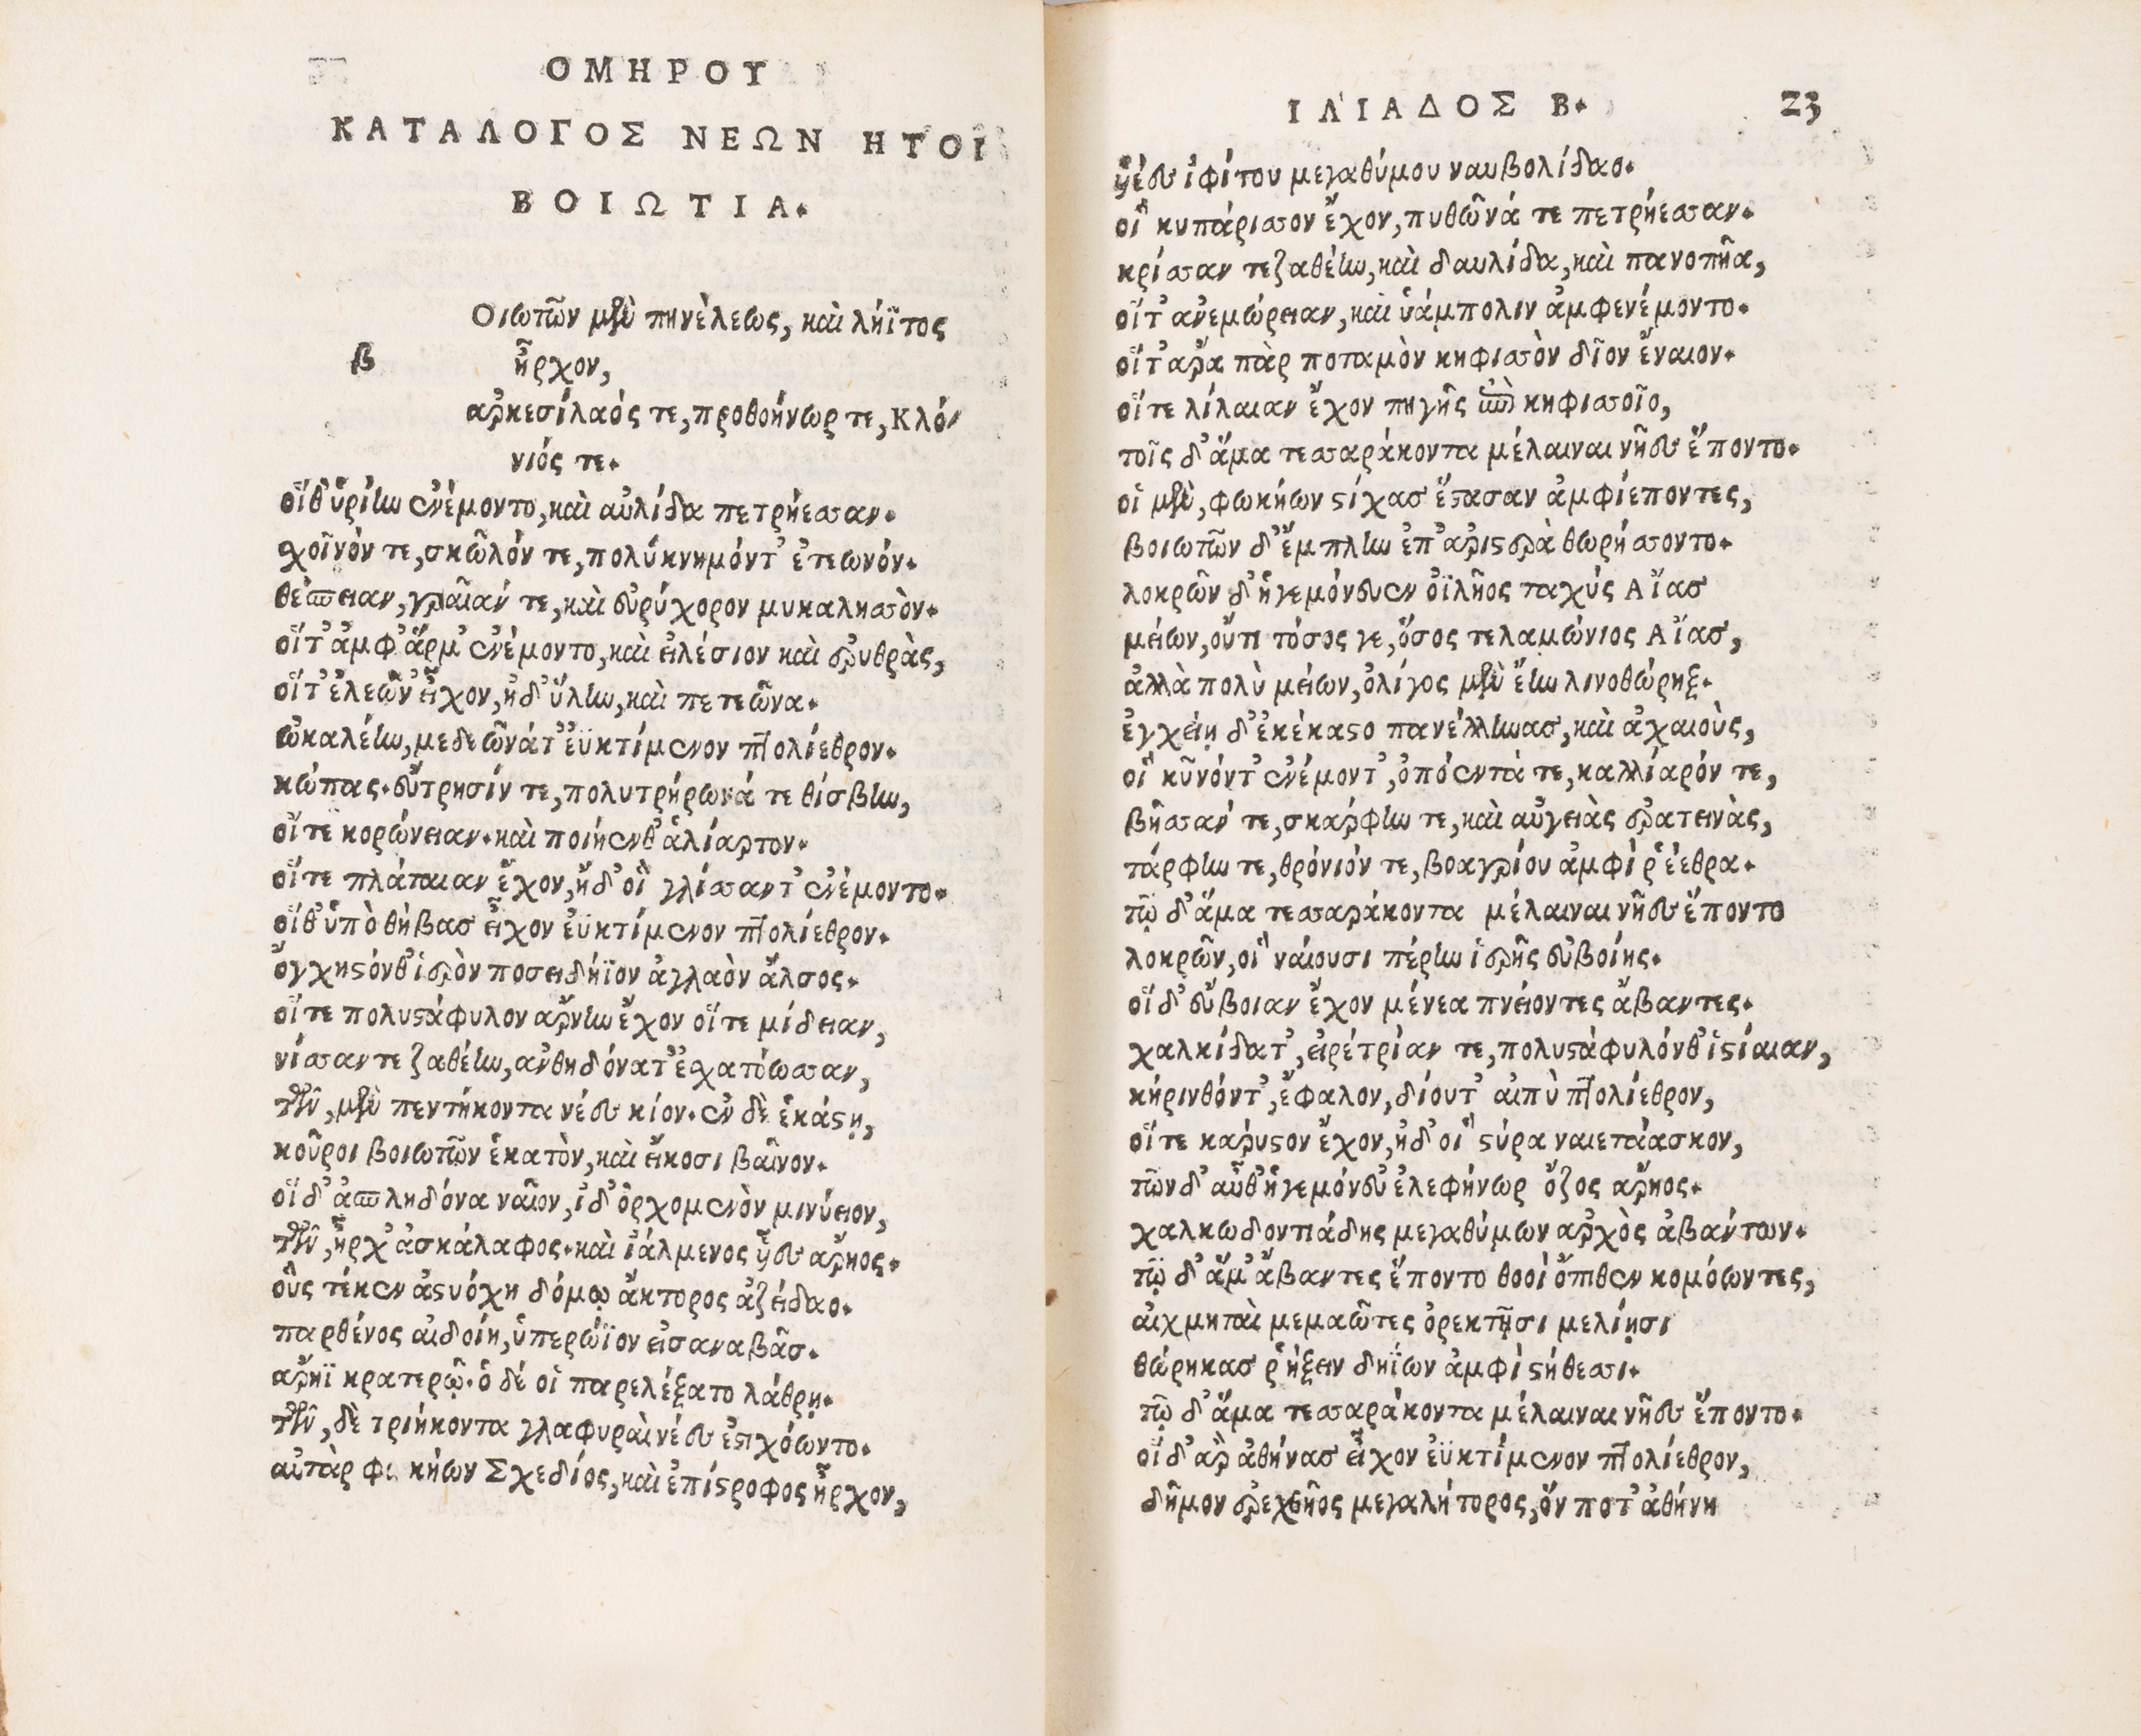 ΟΜΗΡΟΥ
ΚΑΤΑΛΟΓΟΣ ΝΕΩΝ ΗΤΟΙ
ΒΟΙΩΤΙΑ.
Οιωτῶν μὲν πηνέλεως, καὶ λήϊτος
β
ἦρχον,
ἀρκεσίλαός τε, προθοήνωρ τε, Κλό-
νιός τε.
οἵθ᾽ ὑρίην ἐνέμοντο, καὶ αὐλίδα πετρήεσσαν.
σχοῖνόν τε, σκῶλόν τε, πολύκνημόντ᾽ ἐτεωνόν.
θέσπειαν, γραῖάν τε, καὶ εὐρύχορον μυκαλησσὸν.
οἵτ᾽ ἀμφ᾽ ἅρμ᾽ ἐνέμοντο, καὶ εἰλέσιον καὶ ἐρυθρὰς,
οἵτ᾽ ἐλεῶν᾽ εἶχον, ἠδ᾽ ὕλην, καὶ πετεῶνα.
ὠκαλέην, μεδεῶνάτ᾽ ἐϋκτίμενον πτολίεθρον.
κώπας. εὔτρησίν τε, πολυτρήρωνά τε θίσβην,
οἵτε κορώνειαν. καὶ ποιήενθ᾽ ἁλίαρτον.
οἵτε πλάταιαν ἔχον, ἠδ᾽ οἳ γλίσσαντ᾽ ἐνέμοντο.
οἵθ᾽ ὑπὸ θήβας εἶχον ἐϋκτίμενον πτολίεθρον.
ὄγχηστόνθ᾽ ἱερὸν ποσειδήϊον ἀγλαὸν ἄλσος.
οἵτε πολυστάφυλον ἄρνην ἔχον οἵτε μίδειαν,
νίσσαν τε ζαθέην, ἀνθηδόνατ᾽ ἐσχατόωσσαν,
τῶν, μὲν πεντήκοντα νέες κίον. ἐν δὲ ἑκάστῃ,
κοῦροι βοιωτῶν ἑκατὸν, καὶ εἴκοσι βαῖνον.
οἵδ᾽ ἀσπληδόνα ναῖον, ἰδ᾽ ὀρχομενὸν μινύειον,
τῶν, ἦρχ᾽ ἀσκάλαφος. καὶ ἰάλμενος ὗες ἄρηος.
οὓς τέκεν ἀστυόχη δόμῳ ἄκτορος ἀζείδαο.
παρθένος αἰδοίη, ὑπερώϊον εἰσαναβᾶσ.
ἄρηϊ κρατερῷ. ὁ δέ οἱ παρελέξατο λάθρῃ.
τῶν, δὲ τριήκοντα γλαφυραὶ νέες ἐστιχόωντο.
αὐτὰρ φωκήων Σχεδίος, καὶ ἐπίστροφος ἦρχον,
ΙΛΙΑΔΟΣ Β. 23
ὑέες ἰφίτου μεγαθύμου ναυβολίδαο.
οἳ κυπάρισσον ἔχον, πυθῶνά τε πετρήεσσαν.
κρίσσαν τε ζαθέην, καὶ δαυλίδα, καὶ πανοπῆα,
οἵτ᾽ ἀνεμώρειαν, καὶ ὑάμπολιν ἀμφενέμοντο.
οἵτ᾽ ἄρα πὰρ ποταμὸν κηφισσὸν δῖον ἔναιον.
οἵτε λίλαιαν ἔχον πηγῆς ἐπὶ κηφισσοῖο,
τοῖς δ᾽ ἅμα τεσσαράκοντα μέλαιναι νῆες ἕποντο.
οἱ μὲν, φωκήων στίχας ἕστασαν ἀμφιέποντες,
βοιωτῶν δ᾽ ἔμπλην ἐπ᾽ ἀριστερὰ θωρήσσοντο.
λοκρῶν δ᾽ ἡγεμόνευεν ὀϊλῆος ταχύς Αἴας
μείων, οὔτι τόσος γε, ὅσος τελαμώνιος Αἴας,
ἀλλὰ πολὺ μείων, ὀλίγος μὲν ἔην λινοθώρηξ.
ἐγχείῃ δ᾽ ἐκέκαστο πανέλληνας, καὶ ἀχαιοὺς,
οἳ κῦνόντ᾽ ἐνέμοντ᾽, ὀπόεντά τε, καλλίαρόν τε,
βῆσσάν τε, σκάρφην τε, καὶ αὐγειὰς ἐρατεινὰς,
τάρφην τε, θρόνιόν τε, βοαγρίου ἀμφὶ ῥέεθρα.
τῷ δ᾽ ἅμα τεσσαράκοντα μέλαιναι νῆες ἕποντο
λοκρῶν, οἳ ναίουσι πέρην ἱερῆς εὐβοίης.
οἵδ᾽ εὔβοιαν ἔχον μένεα πνείοντες ἄβαντες.
χαλκίδατ᾽, εἰρέτριαν τε, πολυστάφυλόνθ᾽ ἱστίαιαν,
κήρινθόντ᾽, ἔφαλον, δίουτ᾽ αἰπὺ πτολίεθρον,
οἵτε κάρυστον ἔχον, ἠδ᾽ οἳ στύρα ναιετάασκον,
τῶνδ᾽ αὖθ᾽ ἡγεμόνευ᾽ ἐλεφήνωρ ὄζος ἄρηος.
χαλκωδοντιάδης μεγαθύμων ἀρχὸς ἀβαντων.
τῷ δ᾽ ἅμ᾽ ἄβαντες ἕποντο θοοὶ ὄπιθεν κομόωντες,
αἰχμηταὶ μεμαῶτες ὀρεκτῇσι μελίῃσι
θώρηκας ῥήξειν δηΐων ἀμφὶ στήθεσσι.
τῷ δ᾽ ἅμα τεσσαράκοντα μέλαιναι νῆες ἕποντο.
οἵδ᾽ ἄρ ἀθήνας εἶχον ἐϋκτίμενον πτολίεθρον,
δῆμον ἐρεχθῆος μεγαλήτορος, ὅν ποτ᾽ ἀθήνη